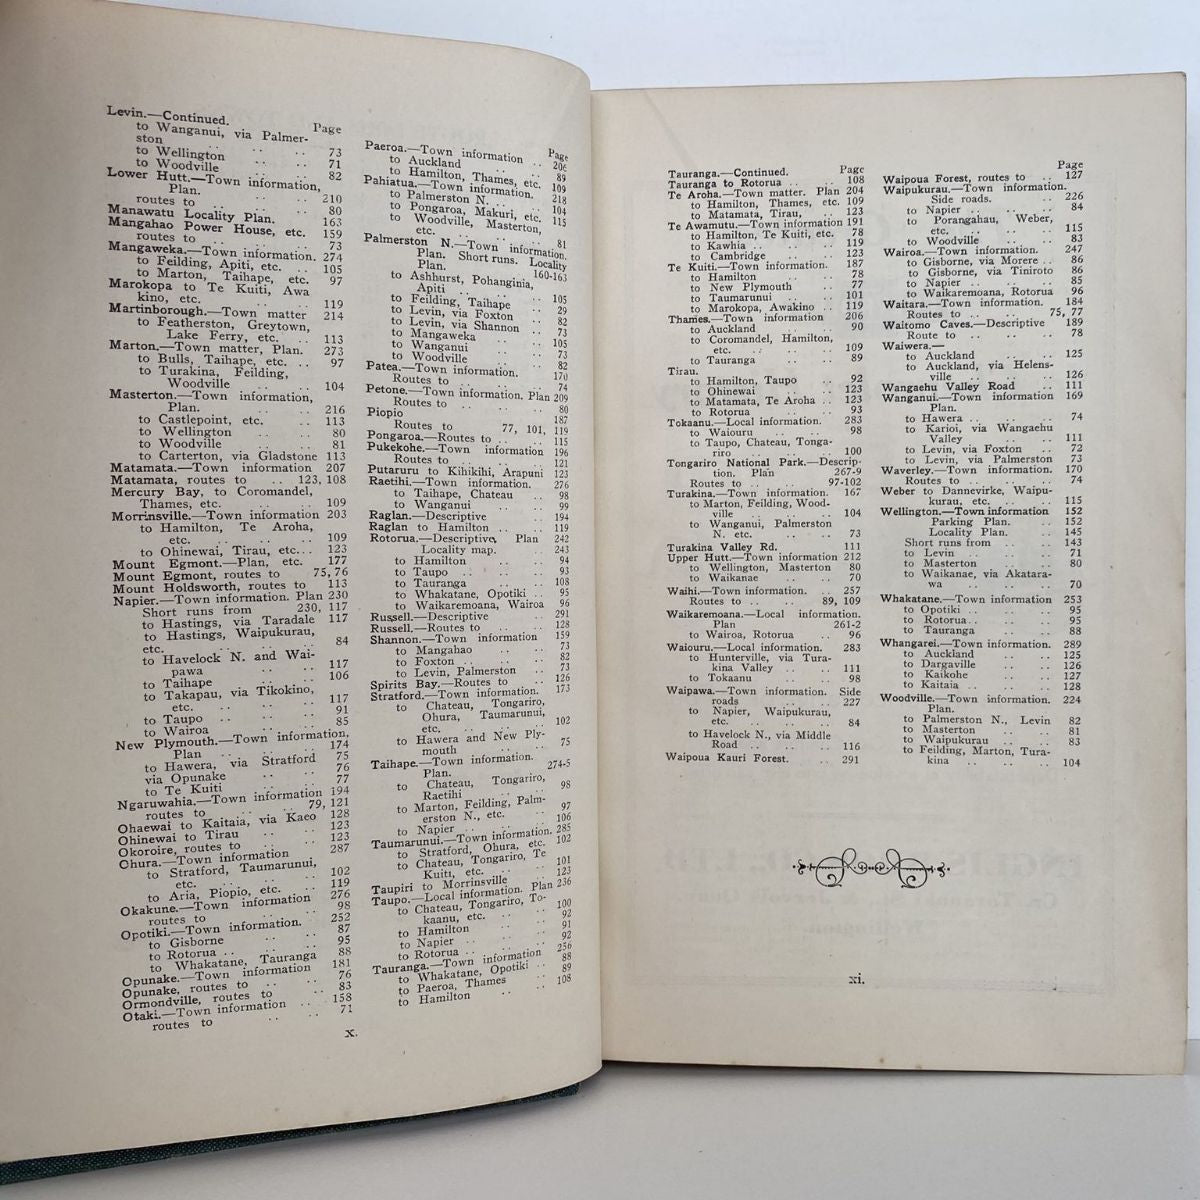 Levin.—Continued.
Page
to Wanganui, via Palmer-
ston .. .. .. 73
to Wellington .. .. 71
to Woodville .. .. 82
Lower Hutt.—Town information,
Plan. 210
routes to .. .. .. 80
Manawatu Locality Plan. 163
Mangahao Power House, etc. 159
routes to .. .. .. 73
Mangaweka.—Town information. 274
to Feilding, Apiti, etc. .. 105
to Marton, Taihape, etc. 97
Marokopa to Te Kuiti, Awa
kino, etc. .. .. 119
Martinborough.—Town matter 214
to Featherston, Greytown,
Lake Ferry, etc. .. 113
Marton.—Town matter, Plan. 273
to Bulls, Taihape, etc. .. 97
to Turakina, Feilding,
Woodville .. .. 104
Masterton.—Town information,
Plan. 216
to Castlepoint, etc. .. 113
to Wellington .. .. 80
to Woodville .. .. 81
to Carterton, via Gladstone 113
Matamata.—Town information 207
Matamata, routes to .. 123, 108
Mercury Bay, to Coromandel,
Thames, etc. .. .. 109
Morrinsville.—Town information 203
to Hamilton, Te Aroha,
etc. .. .. .. 109
to Ohinewai, Tirau, etc... 123
Mount Egmont.—Plan, etc. 177
Mount Egmont, routes to 75, 76
Mount Holdsworth, routes to 113
Napier.—Town information. Plan 230
Short runs from 230, 117
to Hastings, via Taradale 117
to Hastings, Waipukurau,
etc. .. .. .. 84
to Havelock N. and Wai-
pawa .. .. 117
to Taihape .. .. 106
to Takapau, via Tikokino,
etc. .. .. .. 117
to Taupo .. .. 91
to Wairoa .. .. 85
New Plymouth.—Town information,
Plan .. .. .. 174
to Hawera, via Stratford 75
via Opunake .. .. 76
to Te Kuiti .. .. 77
Ngaruwahia.—Town information 194
routes to .. .. 79, 121
Ohaewai to Kaitaia, via Kaeo 128
Ohinewai to Tirau .. .. 123
Okoroire, routes to .. .. 287
Ohura.—Town information
to Stratford, Taumarunui,
etc. .. .. .. 102
to Aria, Piopio, etc. .. 119
Okakune.—Town information 276
routes to .. .. .. 98
Opotiki.—Town information. 252
to Gisborne .. .. 87
to Rotorua .. .. .. 95
to Whakatane, Tauranga 88
Opunake.—Town information 181
Opunake, routes to .. .. 76
Ormondville, routes to .. 83
Otaki.—Town information .. 158
routes to .. .. .. 71
x.
Page
Paeroa.—Town information .. 206
to Auckland .. .. 89
to Hamilton, Thames, etc. 109
Pahiatua.—Town information. 218
to Palmerston N. .. .. 104
to Pongaroa, Makuri, etc. 115
to Woodville, Masterton,
etc. .. .. .. 81
Palmerston N.—Town information.
Plan. Short runs. Locality
Plan. 160-163
to Ashhurst, Pohanginia,
Apiti .. .. .. 105
to Feilding, Taihape .. 29
to Levin, via Foxton .. 82
to Levin, via Shannon .. 73
to Mangaweka .. .. 105
to Wanganui .. .. 73
to Woodville .. .. 82
Patea.—Town information. 170
Routes to .. .. .. 74
Petone.—Town information. Plan 209
Routes to .. .. .. 80
Piopio 187
Routes to 77, 101, 119
Pongaroa.—Routes to .. .. 115
Pukekohe.—Town information 196
Routes to .. .. .. 121
Putaruru to Kihikihi, Arapuni 123
Raetihi.—Town information. 276
to Taihape, Chateau .. 98
to Wanganui .. .. 99
Raglan.—Descriptive .. .. 194
Raglan to Hamilton .. .. 119
Rotorua.—Descriptive, Plan 242
Locality map. .. 243
to Hamilton .. .. 94
to Taupo .. .. .. 93
to Tauranga .. .. 108
to Whakatane, Opotiki .. 95
to Waikaremoana, Wairoa 96
Russell.—Descriptive .. 291
Russell.—Routes to .. .. 128
Shannon.—Town information 159
to Mangahao .. .. 73
to Foxton .. .. .. 82
to Levin, Palmerston .. 73
Spirits Bay.—Routes to .. 126
Stratford.—Town information. 173
to Chateau, Tongariro,
Ohura, Taumarunui,
etc. .. .. .. 102
to Hawera and New Ply-
mouth .. .. 75
Taihape.—Town information.
Plan. 274-5
to Chateau, Tongariro,
Raetihi .. .. 98
to Marton, Feilding, Palm-
erston N., etc. .. 97
to Napier .. .. .. 106
Taumarunui.—Town information. 285
to Stratford, Ohura, etc. 102
to Chateau, Tongariro, Te
Kuiti, etc. .. .. 101
Taupiri to Morrinsville .. 123
Taupo.—Local information. Plan 236
to Chateau, Tongariro, To-
kaanu, etc. .. .. 100
to Hamilton .. .. 92
to Napier .. .. .. 91
to Rotorua .. .. .. 92
Tauranga.—Town information 256
to Whakatane, Opotiki .. 88
to Paeroa, Thames .. 89
to Hamilton .. .. 108
Page
Tauranga.—Continued.
Tauranga to Rotorua .. .. 108
Te Aroha.—Town matter. Plan 204
to Hamilton, Thames, etc. 109
to Matamata, Tirau, .. 123
Te Awamutu.—Town information 191
to Hamilton, Te Kuiti, etc. 78
to Kawhia .. .. .. 119
to Cambridge .. .. 123
Te Kuiti.—Town information. 187
to Hamilton .. .. 78
to New Plymouth .. 77
to Taumarunui .. .. 101
to Marokopa, Awakino .. 119
Thames.—Town information 206
to Auckland .. .. 90
to Coromandel, Hamilton,
etc. .. .. .. 109
to Tauranga .. .. 89
Tirau.
to Hamilton, Taupo .. 92
to Ohinewai .. .. 123
to Matamata, Te Aroha .. 123
to Rotorua .. .. 93
Tokaanu.—Local information. 283
to Waiouru .. .. 98
to Taupo, Chateau, Tonga-
riro .. .. .. 100
Tongariro National Park.—Descrip-
tion. Plan 267-9
Routes to .. .. 97-102
Turakina.—Town information. 167
to Marton, Feilding, Wood-
ville .. .. .. 104
to Wanganui, Palmerston
N. etc. .. .. 73
Turakina Valley Rd. 111
Upper Hutt.—Town information 212
to Wellington, Masterton 80
to Waikanae .. .. 70
Waihi.—Town information. .. 257
Routes to .. .. 89, 109
Waikaremoana.—Local information.
Plan 261-2
to Wairoa, Rotorua .. 96
Waiouru.—Local information. 283
to Hunterville, via Tura-
kina Valley .. .. 111
to Tokaanu .. .. 98
Waipawa.—Town information. Side
roads .. .. 227
to Napier, Waipukurau,
etc. .. .. .. 84
to Havelock N., via Middle
Road .. .. .. 116
Waipoua Kauri Forest. .. 291
Page
Waipoua Forest, routes to .. 127
Waipukurau.—Town information.
Side roads. 226
to Napier .. .. .. 84
to Porangahau, Weber,
etc. .. .. .. 115
to Woodville .. .. 83
Wairoa.—Town information. 247
to Gisborne, via Morere .. 86
to Gisborne, via Tiniroto 86
to Napier .. .. .. 85
to Waikaremoana, Rotorua 96
Waitara.—Town information. 184
Routes to .. .. 75, 77
Waitomo Caves.—Descriptive 189
Route to .. .. .. 78
Waiwera.—
to Auckland .. .. 125
to Auckland, via Helens-
ville .. .. .. 126
Wangaehu Valley Road .. 111
Wanganui.—Town information 169
Plan.
to Hawera .. .. .. 74
to Karioi, via Wangaehu
Valley .. .. 111
to Levin, via Foxton .. 72
to Levin, via Palmerston 73
Waverley.—Town information. 170
Routes to .. .. .. 74
Weber to Dannevirke, Waipu-
kurau, etc. .. .. 115
Wellington.—Town information 152
Parking Plan. .. 152
Locality Plan. .. 145
Short runs from .. .. 143
to Levin .. .. .. 71
to Masterton .. .. 80
to Waikanae, via Akatara-
wa .. .. .. 70
Whakatane.—Town information 253
to Opotiki .. .. .. 95
to Rotorua.. .. .. 95
to Tauranga .. .. 88
Whangarei.—Town information. 289
to Auckland .. .. 125
to Dargaville .. .. 126
to Kaikohe .. .. 127
to Kaitaia .. .. .. 128
Woodville.—Town information. 224
Plan.
to Palmerston N., Levin 82
to Masterton .. .. 81
to Waipukurau .. .. 83
to Feilding, Marton, Tura-
kina .. .. .. 104
xi.